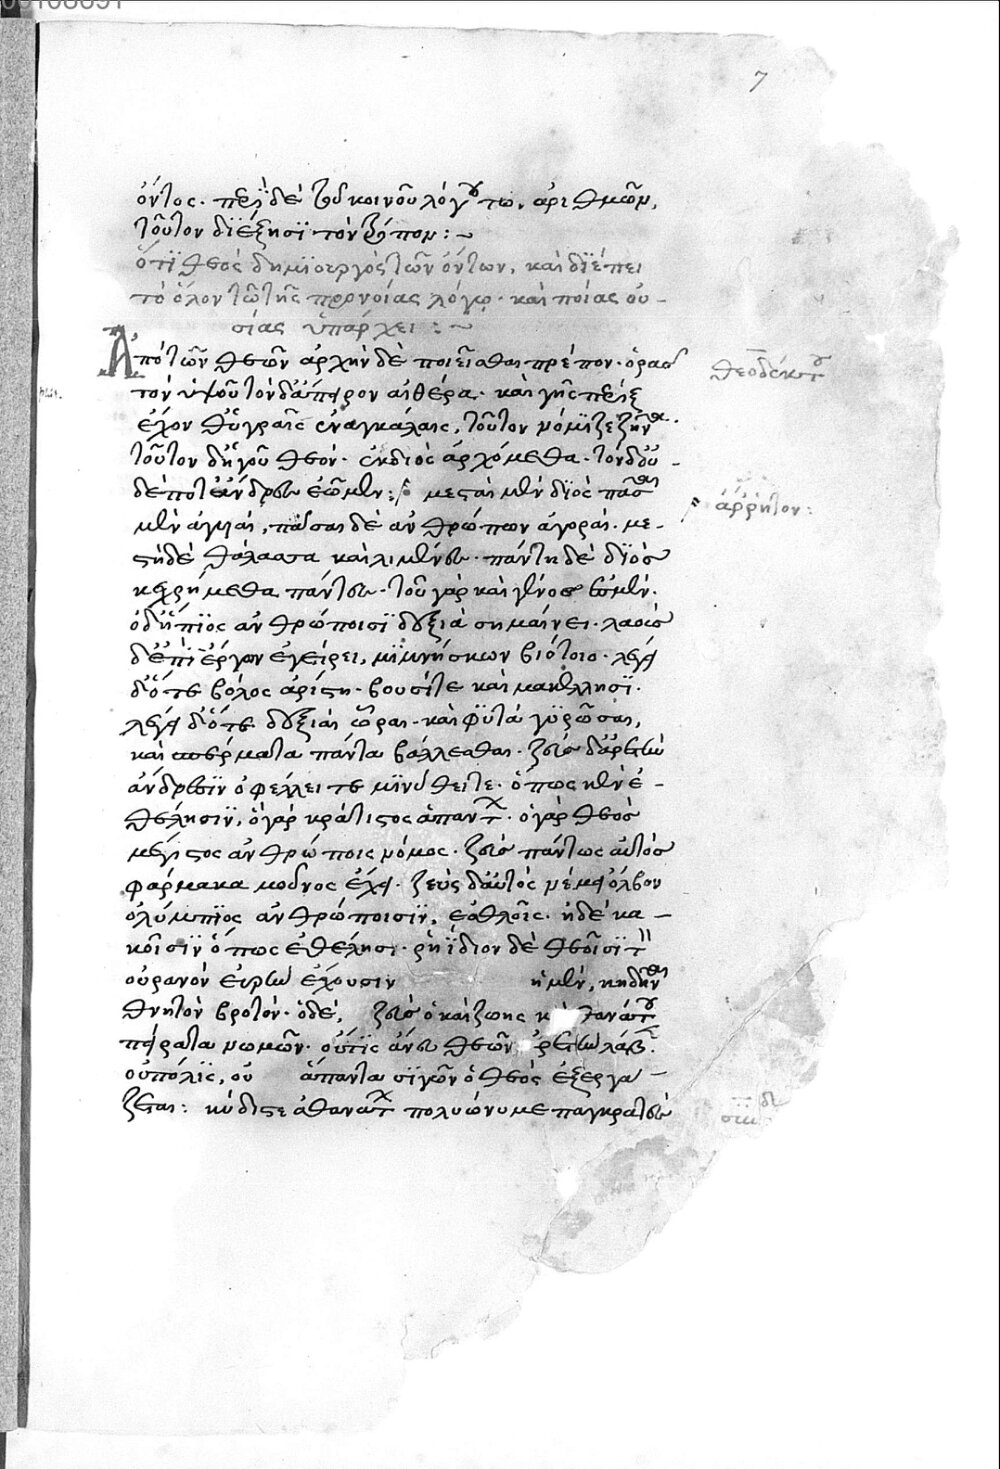 7
ὄντος. περὶ δὲ τοῦ κοινοῦ λόγου τῶν ἀριθμῶν,
τοῦτον διέξησι τὸν τρόπον :~
ὅτι θεὸς δημιουργὸς τῶν ὄντων, καὶ διέπει
τὸ ὅλον τῶ τῆς προνοίας λόγῳ. καὶ ποίας οὐ-
σίας ὑπάρχει :~
Ἀπὸ τῶν θεῶν ἀρχὴν δὲ ποιεῖσθαι πρέπον. ὁρᾶς
θεοδέκτου
τὸν ὑψοῦ τόνδ' ἄπειρον αἰθέρα. καὶ γῆν πέριξ
ἔχον θ' ὑγραῖς ἐν ἀγκάλαις, τοῦτον νόμιζε ζῆνα.
τοῦτον δ' ἡγοῦ θεόν. ἐκ διὸς ἀρχόμεθα. τὸν δ' οὐ-
δέποτ' ἄνδρες ἐῶμεν: μεσταὶ μὲν διὸς πᾶσαι
ἄρρητον:
μὲν ἀγυιαί, πᾶσαι δὲ ἀνθρώπων ἀγοραί. με-
στὴ δὲ θάλασσα καὶ λιμένες. πάντη δὲ διὸς
κεχρήμεθα πάντες. τοῦ γὰρ καὶ γένος ἐσμέν.
ὁ δ' ἤπιος ἀνθρώποισι δεξιὰ σημαίνει. λαοὺς
δ' ἐπὶ ἔργον ἐγείρει, μιμνήσκων βιότοιο. λέγει
δ' ὅτε βῶλος ἀρίστη. βουσί τε καὶ μακέλλησι.
λέγει δ' ὅτε δεξιαὶ ὧραι. καὶ φυτὰ γυρῶσαι,
καὶ σπέρματα πάντα βάλλεσθαι. ζεὺς δ' ἀρετὴν
ἄνδρεσιν ὀφέλλει τε μινύθει τε. ὅπως κεν ἐ-
θέλησιν, ὁ γὰρ κράτιστος ἁπάντων. ὁ γὰρ θεὸς
μέγιστος ἀνθρώποις νόμος. ζεὺς πάντως αὐτὸς
φάρμακα μοῦνος ἔχει. ζεὺς δ' αὐτὸς νέμει ὄλβον
ὀλύμπιος ἀνθρώποισιν, ἐσθλοῖς. ἠδὲ κα-
κοῖσιν ὅπως ἐθέλησι. ῥηΐδιον δὲ θεοῖσι τοὶ
οὐρανὸν εὐρὺν ἔχουσιν ἠμὲν, κηδῆναι
θνητὸν βροτόν. ὁ δέ, ζεὺς ὁ καὶ ζωῆς κ θανάτου
πείρατα νωμῶν. οὔτις ἄνευ θεῶν ἀρετὴν λάβεν.
οὐ πόλις, οὐ ἅπαντα σιγῶν ὁ θεὸς ἐξεργά-
ζεται: κύδιστε ἀθανάτων πολυώνυμε παγκρατὲς